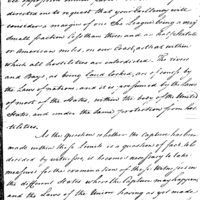 directed me to request that your Excellency will
consider a margin of one Sea League, being a very
small fraction less than three and an half British
or American miles, on our Coast, as that within
which all hostilities are interdicted. The rivers
and Bays, as being land locked, are of course by
the Law of nations, and it is so enforced by the Laws
of most of the States, within the body of the United
States, and under the same protection from hos-
tilities.
As the question whether the Capture has been
made within the Limits is a question of fact, to be
decided by witnesses, it becomes necessary to take
measures for the examination of the parties in
the different States where the Captures may happen,
and the Laws of the Union having as yet made